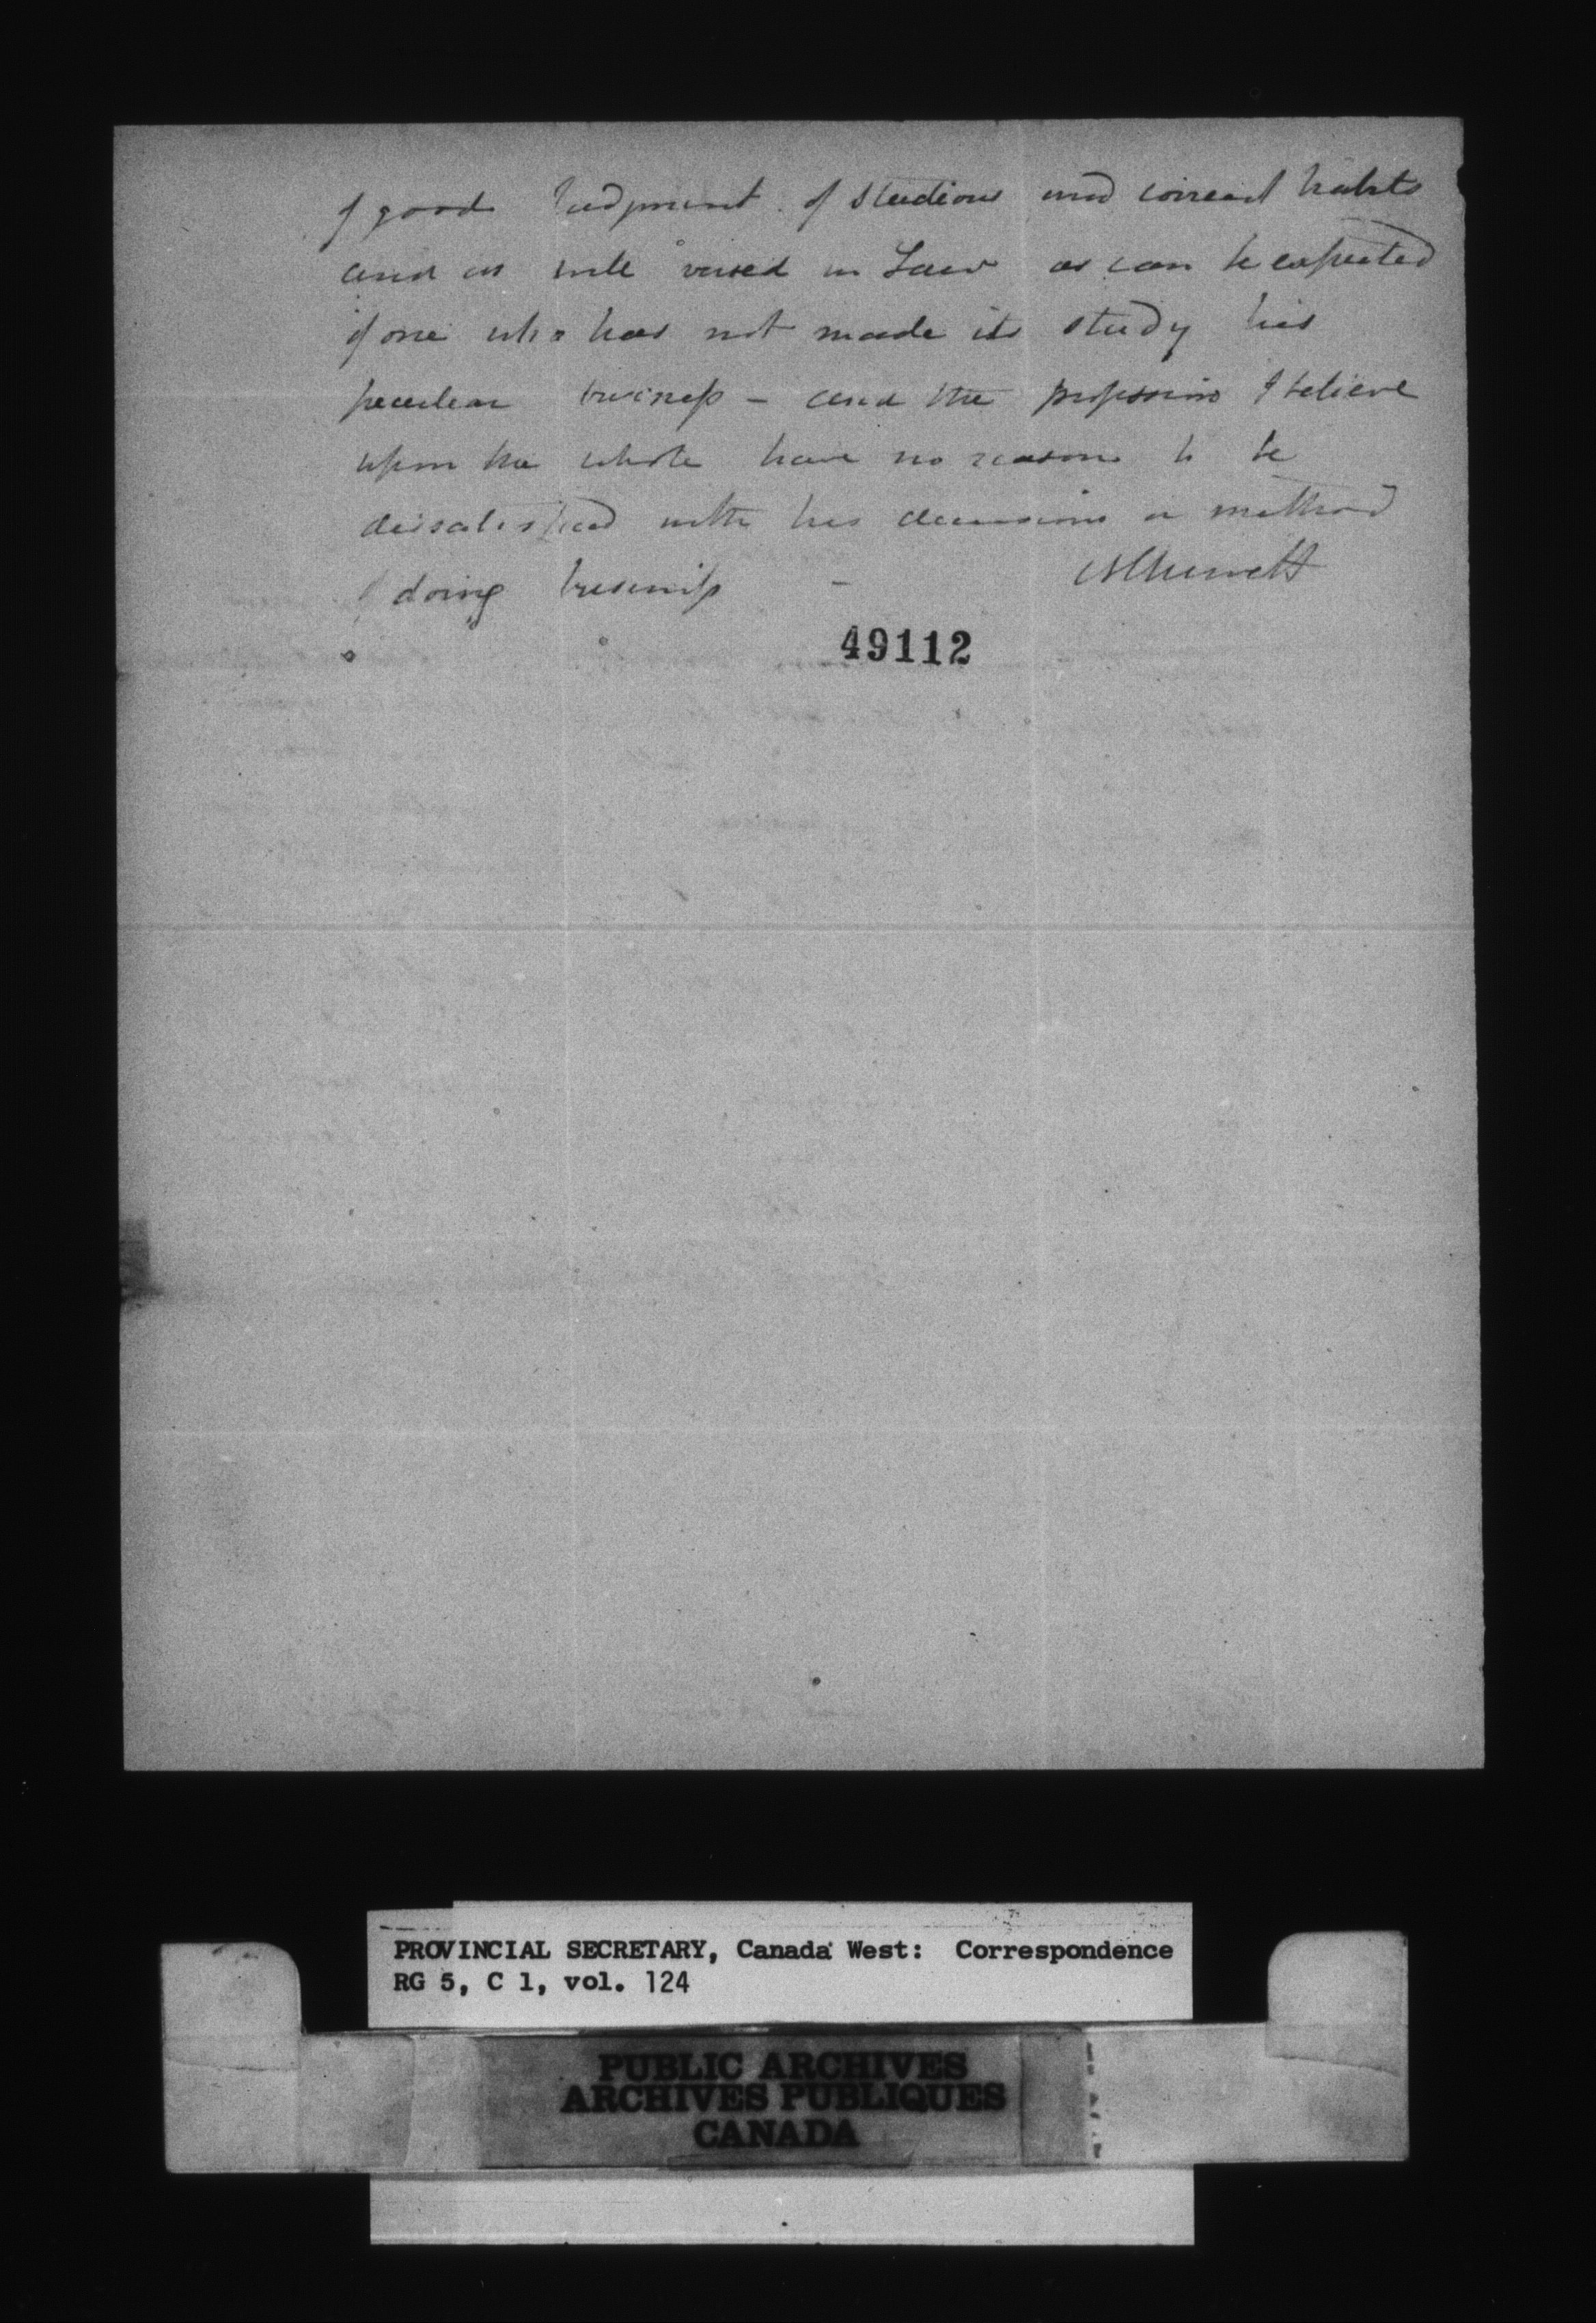 of good Judgment of studious and correct habits
and as well versed in Law as can be expected
of one who has not made its study his
peculiar business - and the profession I believe
upon the whole have no reason to be
dissatisfied with his decisions or method
of doing business -
49112
PROVINCIAL SECRETARY, Canada West: Correspondence
RG 5, C 1, vol. 124
PUBLIC ARCHIVES
ARCHIVES PUBLIQUES
CANADA